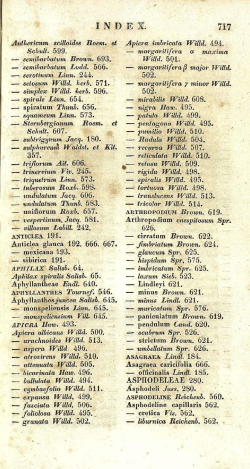 INDEX. 717
Anthericum scilloides Roem. et
Schult. 599.
— semibarbatum Brown. 693.
— semibarbatum Lodd. 566.
— serotinum Linn. 244.
— setosum Willd. herb. 571.
— simplex Willd. herb. 596.
— spirale Linn. 654.
— spiratum Thunb. 656.
— squameum Linn. 573.
— Sternbergianum Roem. et
Schult. 607.
— subtrigynum Jacq. 180.
— sulphureum Waldst. et Kit.
357.
— triflorum Ait. 606.
— trinervium Viv. 245.
— triquetrum Linn. 573.
— tuberosum Roxb. 598.
— undulatum Jacq. 606.
— undulatum Thunb. 583.
— uniflorum Roxb. 657.
— vespertinum Jacq. 581.
— villosum Labill. 242.
ANTICLEA 191.
Anticlea glauca 192. 666. 667.
— mexicana 193.
— sibirica 191.
APHILAX Salisb. 64.
Aphilax spiralis Salisb. 65.
Aphyllantheae Endl. 640.
APHYLLANTHES Tournef. 546.
Aphyllanthos juncea Salisb. 645.
— monspeliensis Linn. 645.
— monspeliensium Vill. 645.
APICRA Haw. 493.
Apicra albicans Willd. 500.
— arachnoides Willd. 513.
— aspera Willd. 496.
— atrovirens Willd. 510.
— attenuata Willd. 505.
— bicarinata Haw. 496.
— bullulata Willd. 494.
— cymbaefolia Willd. 511.
— expansa Willd. 499,
— fasciata Willd. 506.
— foliolosa Willd. 495.
— granata Willd. 502.
Apicra imbricata Willd. 494.
— margaritifera α maxima
Willd. 501.
— margaritifera β major Willd.
502.
— margaritifera γ minor Willd.
502.
— mirabilis Willd. 608.
— nigra Haw. 495.
— patula Willd. 499.
— pentagona Willd. 495.
— pumilio Willd. 510.
— Radula Willd. 504.
— recurva Willd. 507.
— reticulata Willd. 510.
— retusa Willd. 509.
— rigida Willd. 498.
— spiralis Willd. 495.
— tortuosa Willd. 498.
— translucens Willd. 513.
— tricolor Willd. 514.
ARTHROPODIUM Brown. 619.
Arthropodium caespitosum Spr.
626.
— cirratum Brown. 622.
— fimbriatum Brown. 624.
— glaucum Spr. 625.
— hispidum Spr. 575.
— imbricatum Spr. 625.
— laxum Sieb. 523.
— Lindleyi 621.
— minus Brown. 621.
— minus Lindl. 621.
— muricatum Spr. 576.
— paniculatum Brown. 619.
— pendulum Cand. 620.
— scabrum Spr. 526.
— strictum Brown. 621.
— umbellatum Spr. 626.
ASAGRAEA Lindl. 184.
Asagraea caricifolia 666.
— officinalis Lindl. 185.
ASPHODELEAE 280.
Asphodeli Juss. 280.
ASPHODELINE Reichenb. 560.
Asphodeline capillaris 562.
— cretica Vis. 562.
— liburnica Reichenb. 562.